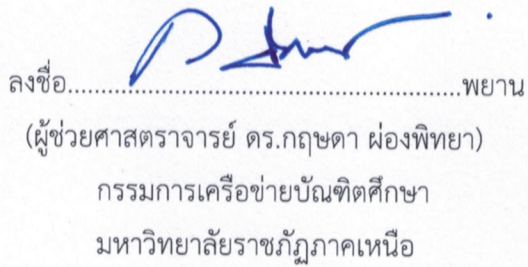 ลงชื่อ............................................................พยาน
(ผู้ช่วยศาสตราจารย์ ดร.กฤษดา ผ่องพิทยา)
กรรมการเครือข่ายบัณฑิตศึกษา
มหาวิทยาลัยราชภัฏภาคเหนือ